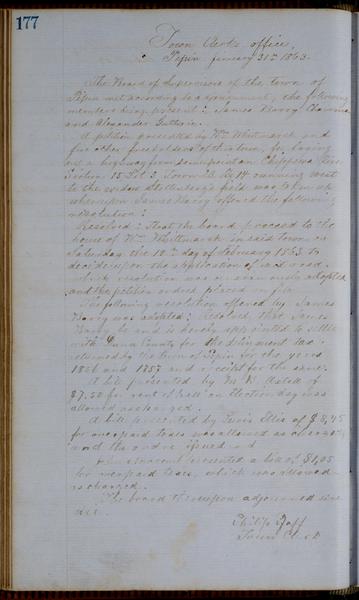 177
Town Clerks office,
Pepin January 31st 1863.
The Board of Supervisors of the town of
Pepin met according to adjournment, the following
members being present: James Barry Chairman
and Alexander Guthrie.
A petition presented by Wm Whitmarsh and
five other freeholders of this town, for laying
out a highway from some point on Chippewa River
Section 15 Lot 3 Town 23 Rg 14 running West
to the widow field was taken up
whereupon James Barry offered the following
resolution:
Resolved: That the board proceed to the
house of Wm Whitmarsh in said town on
Saturday the 10th day of February 1863 to
decide upon the application of said road.
which resolution was unanimously adopted
and the petition ordered placed on file.
The following resolution offered by James
Barry was adopted: Resolved that James
Barry be and is hereby appointed to settle
with Dunn County for the delinquent tax
returned by the town of Pepin for the years
1856 and 1857 and receipt for the same.
A bill presented by M. B. Axtell of
$7.50 for rent of hall on Election day was
allowed as charged.
A bill presented by Lewis Ellis of $8,45
for overpaid taxes was allowed as charged
and the order issued
presented a bill of $1,05
for overpaid taxes, which was allowed
as charged.
The board thereupon adjourned sine
die.
Philip Goff
Town Clerk